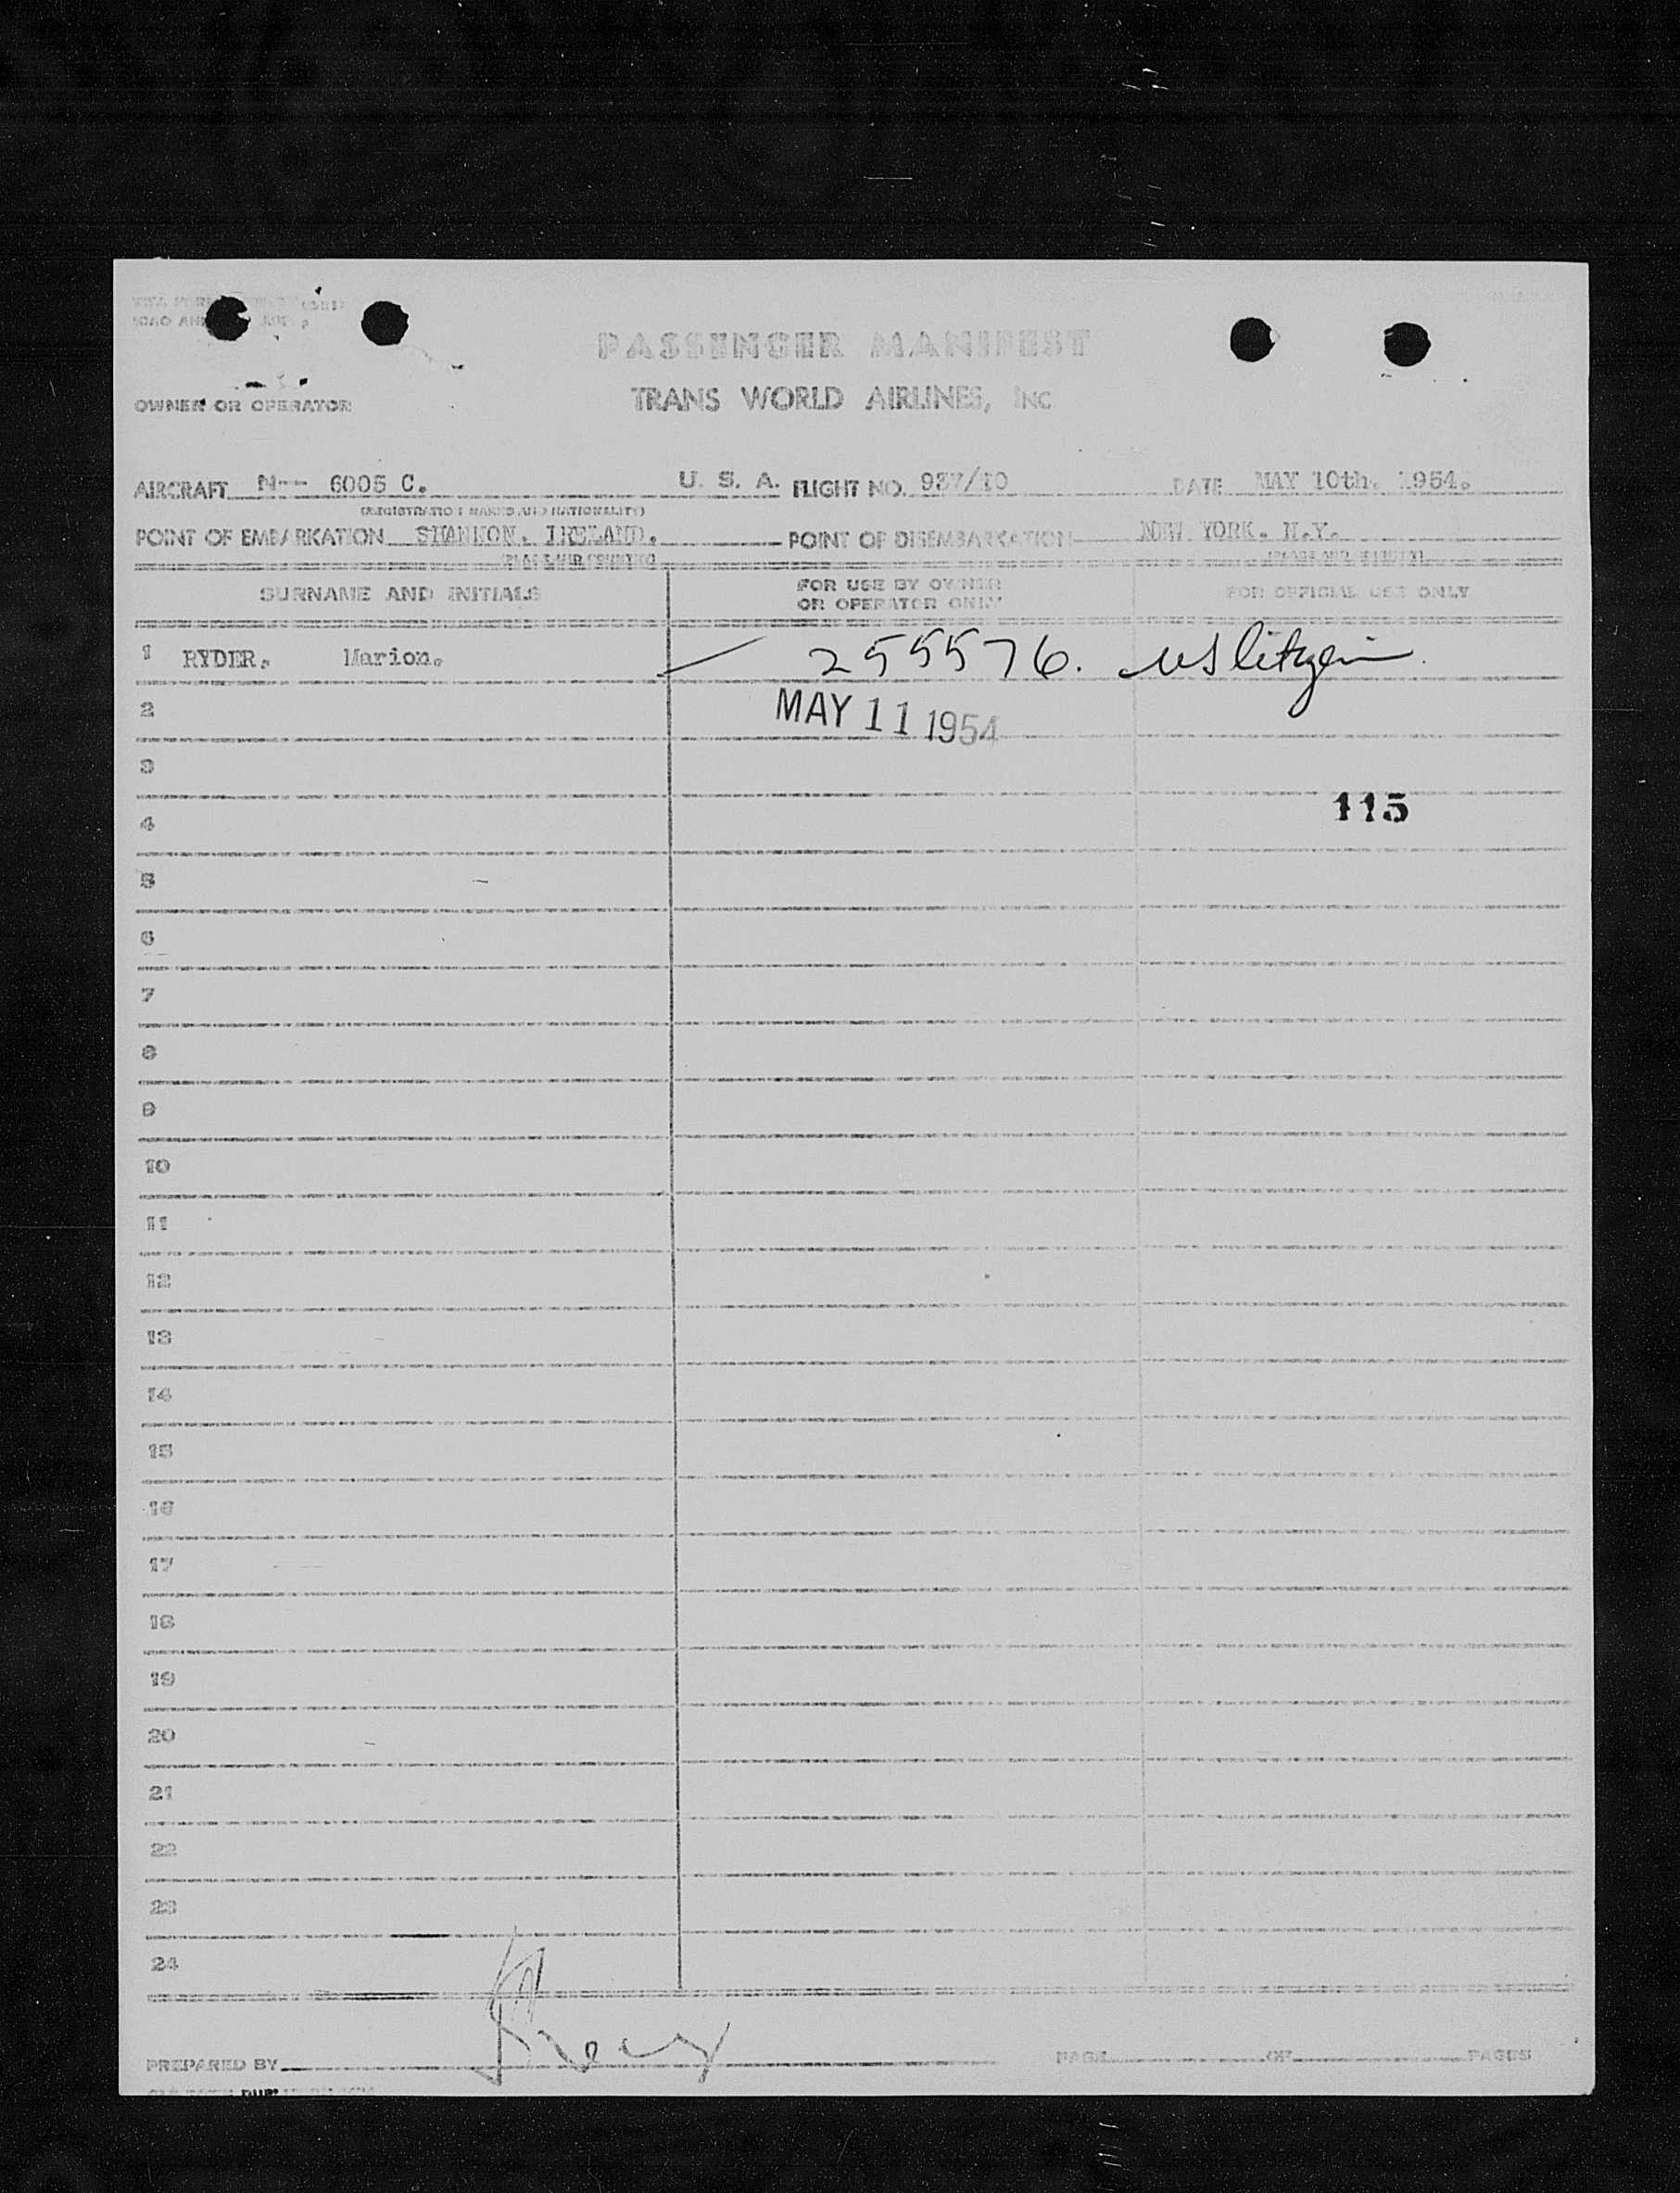 PASSENGER MANIFEST
OWNER OR OPERATOR TRANS WORLD AIRLINES, INC
AIRCRAFT N-- 6005 C. U. S. A. FLIGHT NO. 937/10 DATE MAY 10th. 1954.
(REGISTRATION MARKS AND NATIONALITY)
POINT OF EMBARKATION SHANNON. IRELAND. POINT OF DISEMBARKATION NEW YORK. N.Y.
(PLACE AND COUNTRY) (PLACE AND COUNTRY)
SURNAME AND INITIALS FOR USE BY OWNER OR OPERATOR ONLY FOR OFFICIAL USE ONLY
1 RYDER. Marion. 255576. US Citizen
2 MAY 11 1954
3
115
4
5
6
7
8
9
10
11
12
13
14
15
16
17
18
19
20
21
22
23
24
PREPARED BY PAGE OF PAGES